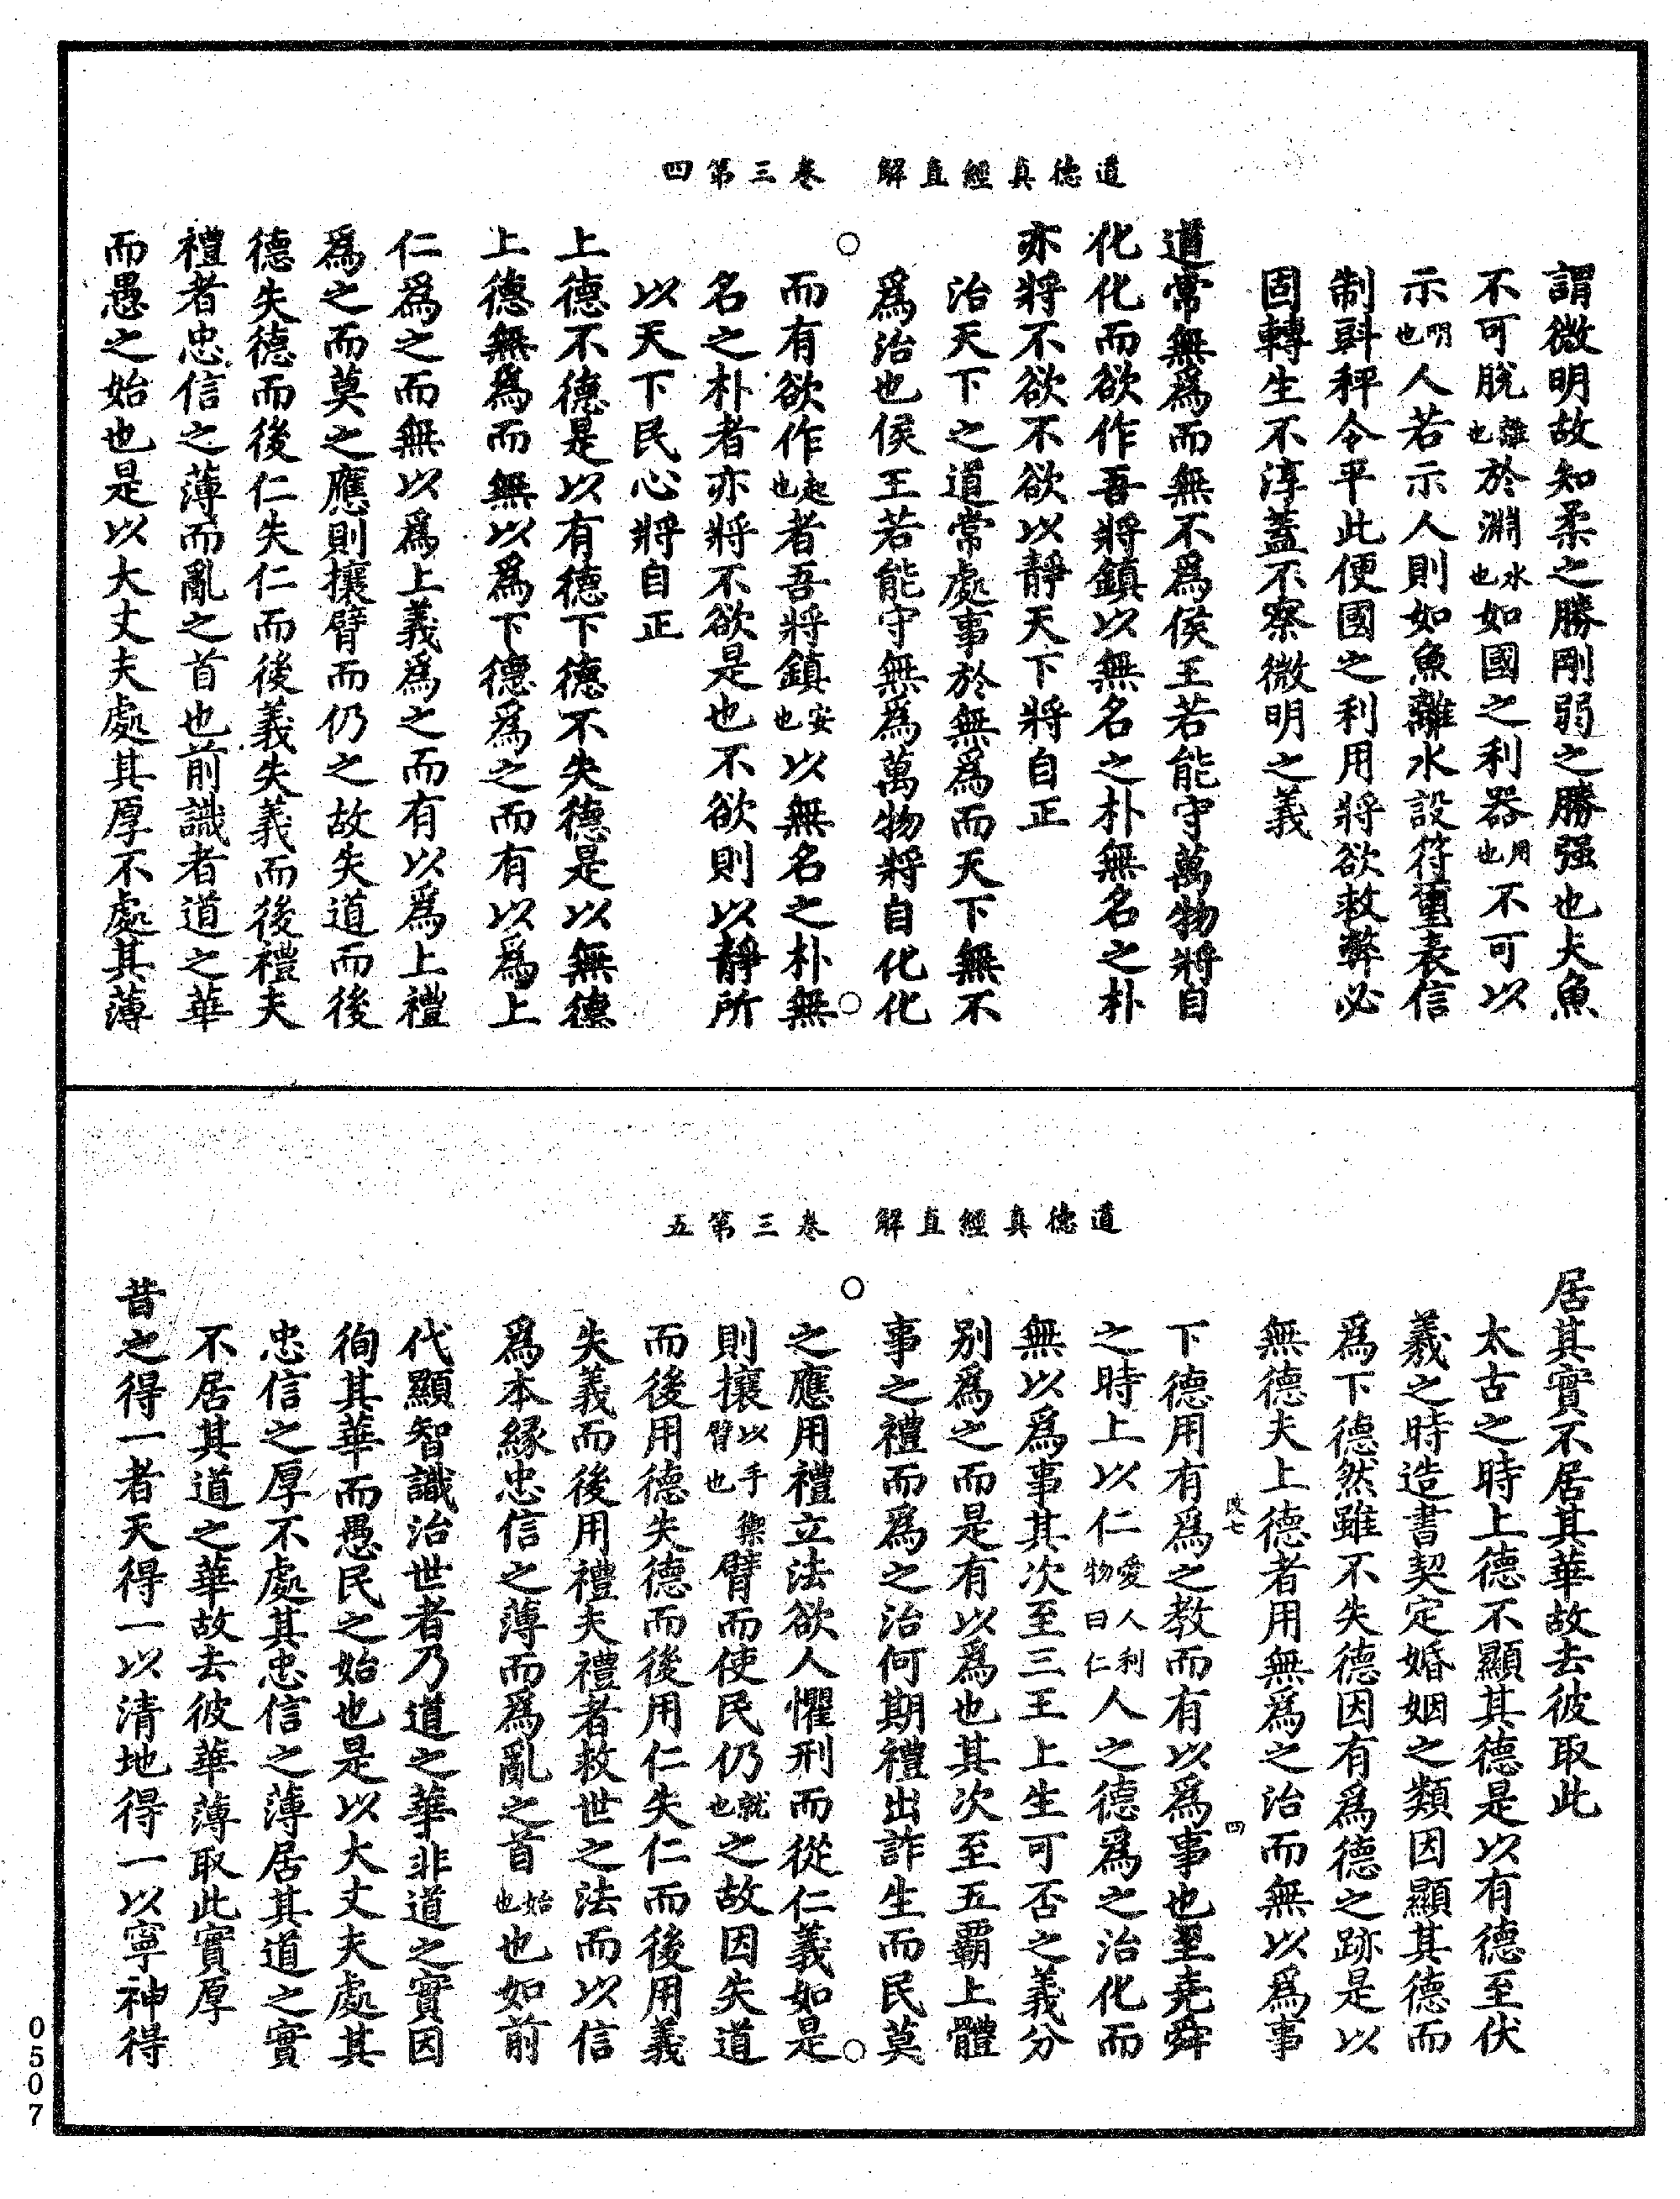 道德真經直解　卷三第四
謂微明故知柔之勝剛弱之勝强也夫魚
不可脫離也於淵水也如國之利器用也不可以
示明也人若示人則如魚離水設符璽表信
制斟秤令平此便國之利用將欲救弊必
固轉生不淳蓋不察微明之義
道常無爲而無不爲侯王若能守萬物將自
化化而欲作吾將鎮以無名之朴無名之朴
亦將不欲不欲以靜天下將自正
治天下之道常處事於無爲而天下無不
爲治也侯王若能守無爲萬物將自化化
而有欲作起也者吾將鎮安也以無名之朴無
名之朴者亦將不欲是也不欲則以靜所
以天下民心將自正
上德不德是以有德下德不失德是以無德
上德無爲而無以爲下德爲之而有以爲上
仁爲之而無以爲上義爲之而有以爲上禮
爲之而莫之應則攘臂而仍之故失道而後
德失德而後仁失仁而後義失義而後禮夫
禮者忠信之薄而亂之首也前識者道之華
而愚之始也是以大丈夫處其厚不處其薄
道德真經直解　卷三第五
居其實不居其華故去彼取此
太古之時上德不顯其德是以有德至伏
羲之時造書契定婚姻之類因顯其德而
爲下德然雖不失德因有爲德之跡是以
無德夫上德者用無爲之治而無以爲事
四
下德用有爲之教而有以爲事也至堯舜
之時上以仁愛人利物曰仁人之德爲之治化而
無以爲事其次至三王上生可否之義分
别爲之而是有以爲也其次至五霸上體
事之禮而爲之治何期禮出詐生而民莫
之應用禮立法欲人懼刑而從仁義如是
則攘以手禦臂也臂而使民仍就也之故因失道
而後用德失德而後用仁失仁而後用義
失義而後用禮夫禮者救世之法而以信
爲本緣忠信之薄而爲亂之首始也也如前
代顯智識治世者乃道之華非道之實因
徇其華而愚民之始也是以大丈夫處其
忠信之厚不處其忠信之薄居其道之實
不居其道之華故去彼華薄取此實厚
昔之得一者天得一以清地得一以寧神得
0507